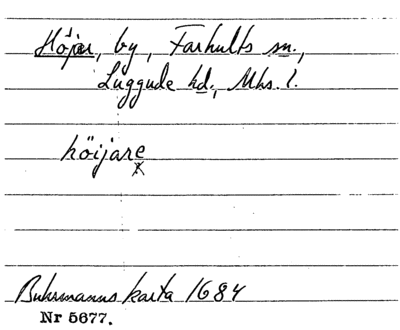 Höjar, by, Farhults sn.,
Luggude hd., Mhs. l.
höijare
x
Buhrmanns karta 1684
Nr 5677.